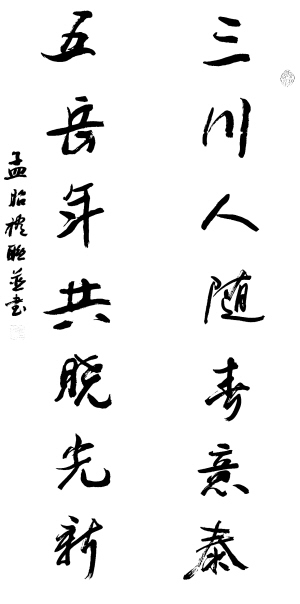 三川人随春意泰
五岳年共晓光新
孟昭礼联并书